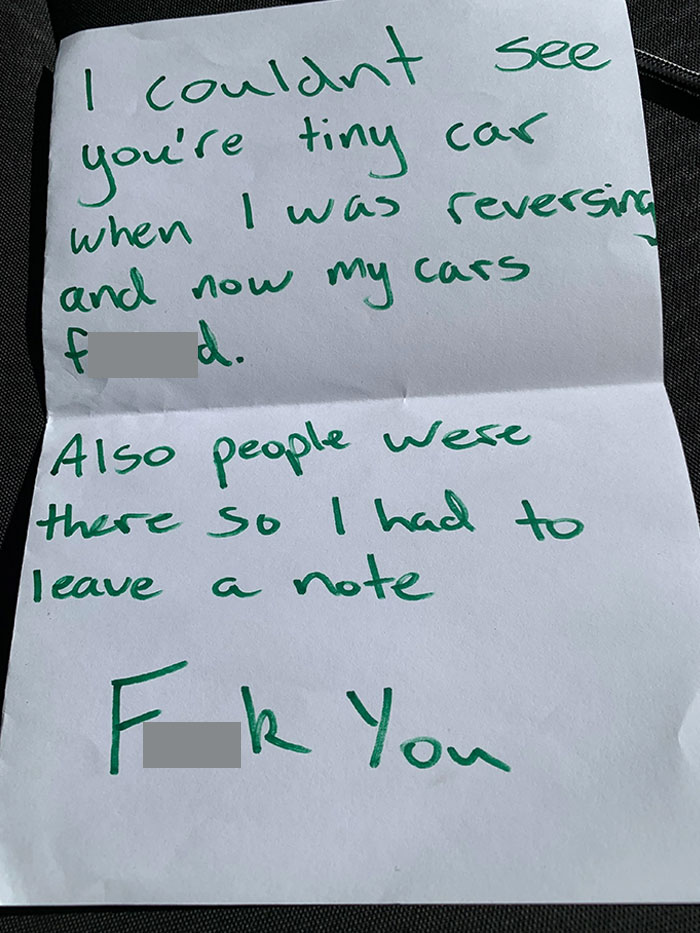 I couldnt see
you're tiny car
when I was reversing
and now my cars
f d.
Also people were
there so I had to
leave a note
F k You